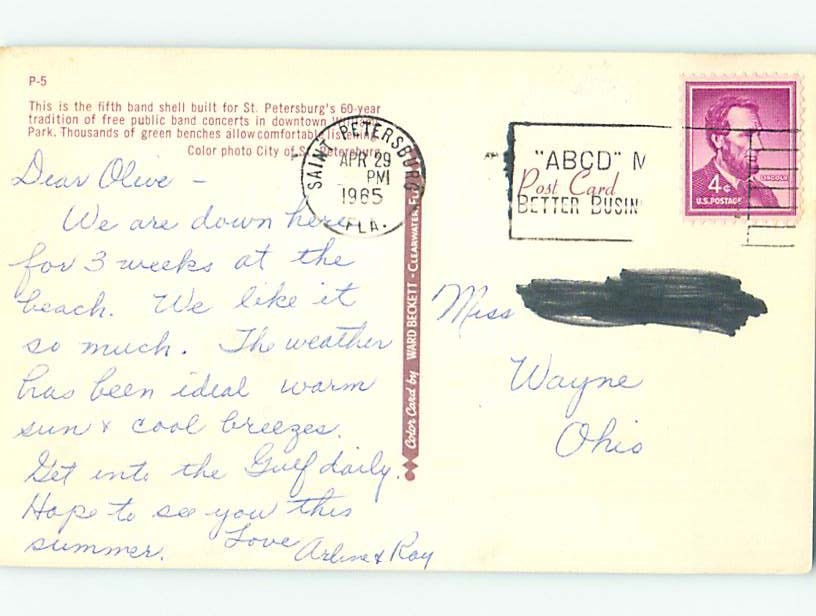 P-5
This is the fifth band shell built for St. Petersburg's 60-year
tradition of free public band concerts in downtown
Park. Thousands of green benches allow comfortable listening.
Color photo City of St. Petersburg
SAINT PETERSBURG
APR 29
PM
1965
FLA.
"ABCD" M
Post Card
BETTER BUSIN
LINCOLN
4¢
U.S. POSTAGE
Dear Olive -
We are down here
for 3 weeks at the
beach. We like it
so much. The weather
has been ideal warm
sun & cool breezes.
Get into the Gulf daily.
Hope to see you this
summer. Love
Arline & Ray
Color Card by WARD BECKETT - CLEARWATER, FL
Miss
Wayne
Ohio